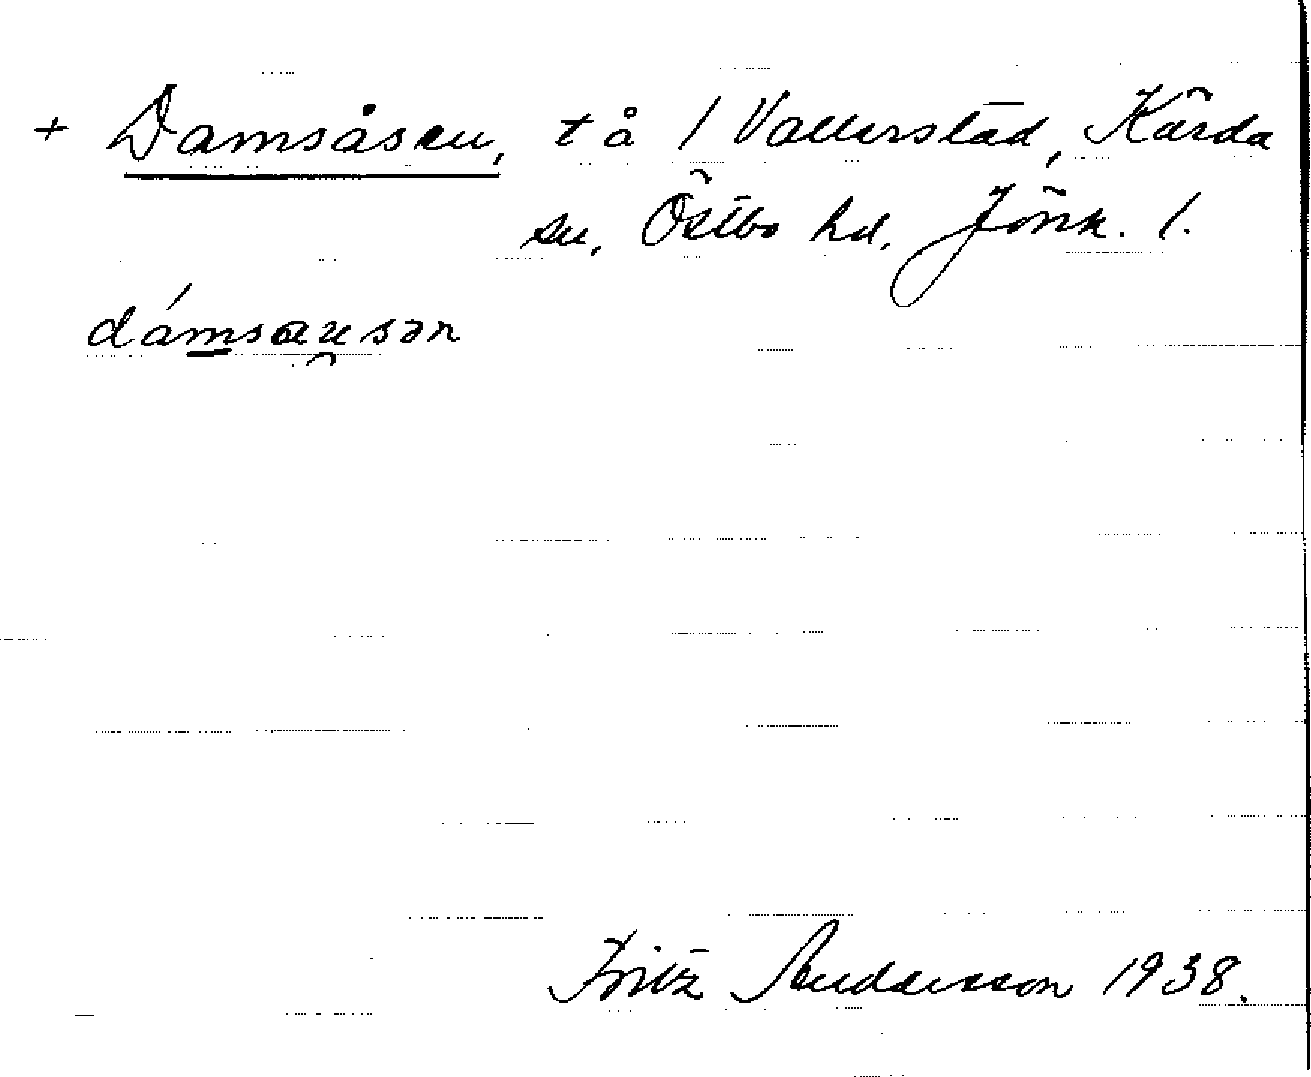 + Damsåsen, t å 1 Vallerstad, Kärda
sn, Östbo hd, Jönk. l.
dámsɑu̯sən
Fritz Andersson 1938.